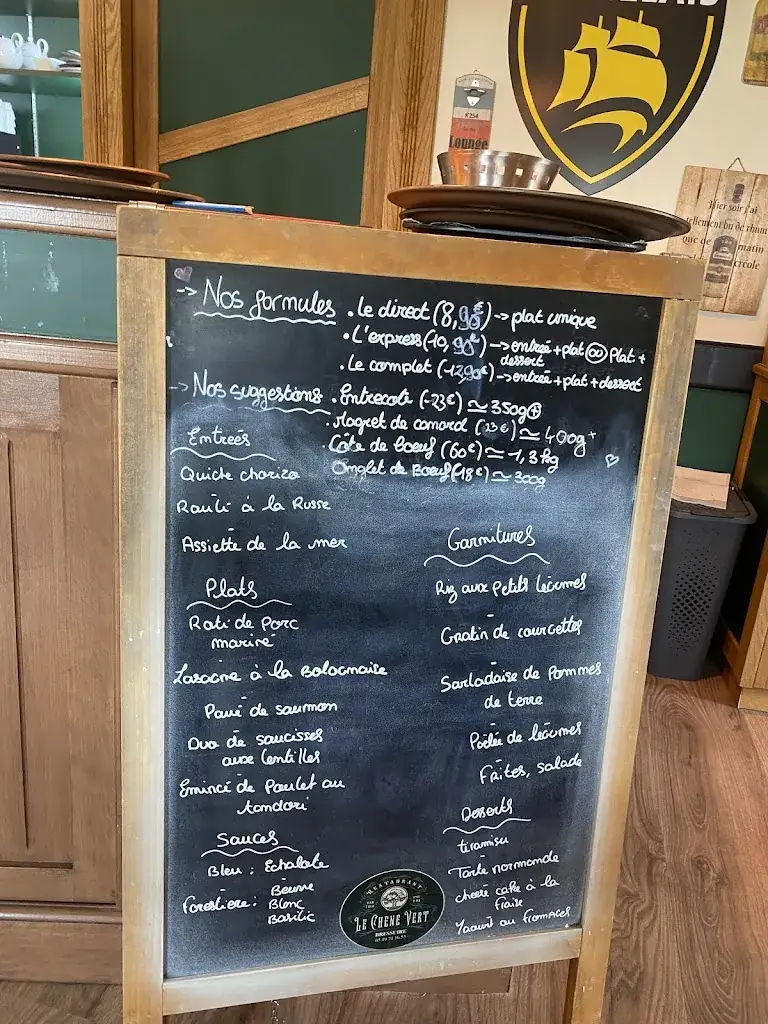 K254
Lounge
Hier soir j'ai
tellement bu de rhum
que ce matin
créole
-> Nos formules
• Le direct (8,90€) -> plat unique
• L'express (10,90€) -> entrée + plat ou Plat +
dessert
• Le complet (12,90€) -> entrée + plat + dessert
-> Nos suggestions
• Entrecote (23€) ≃ 350g +
• Magret de canard (23€) ≃ 400g +
• Côte de boeuf (60€) ≃ 1,3kg
Omglet de Boeuf (18€) ≃ 300g
Entrées
Quiche chorizo
Rouli à la Russe
Assiette de la mer
Plats
Roti de Porc
mariné
Lasagne à la Bolognaise
Pavé de saumon
Duo de saucisses
aux lentilles
Emincé de Poulet au
tandori
Sauces
Bleu : Echalote
Forestière : Beurre
Blanc
Basilic
Garnitures
Riz aux Petits légumes
Gratin de courgettes
Sarladaise de Pommes
de terre
Poêlée de légumes
Frites, salade
Desserts
tiramisu
Tarte normande
cheese cake à la
Fraise
Yaourt ou Fromages
RESTAURANT
LE CHENE VERT
BRESSUIRE